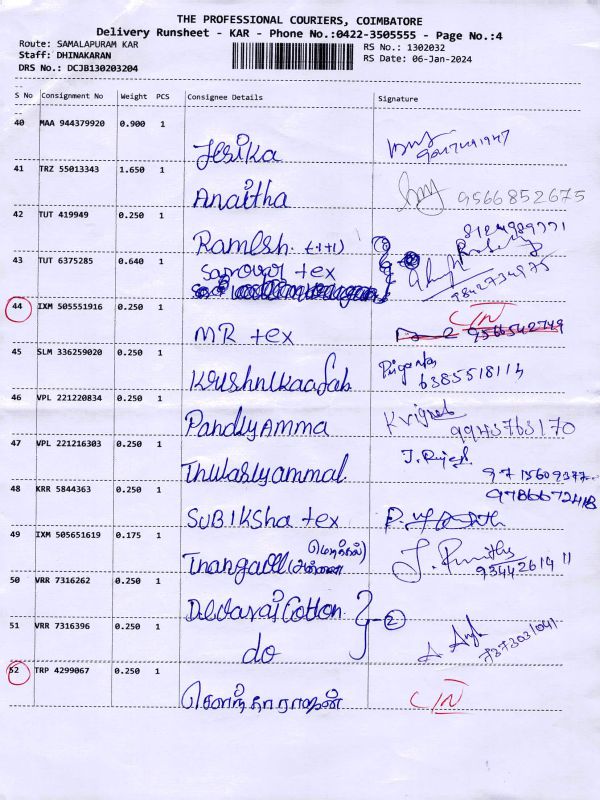 THE PROFESSIONAL COURIERS, COIMBATORE
Delivery Runsheet - KAR - Phone No.:0422-3505555 - Page No.:4
Route: SAMALAPURAM KAR
RS No.: 1302032
Staff: DHINAKARAN
RS Date: 06-Jan-2024
DRS No.: DCJB130203204
S No Consignment No Weight PCS Consignee Details Signature
40 MAA 944379920 0.900 1
Jesika
41 TRZ 55013343 1.650 1
Anaitha 9566852675
42 TUT 419949 0.250 1
Ramesh. (-1+1)
43 TUT 6375285 0.640 1
Sarovar tex 9842734975
44 IXM 505551916 0.250 1
MR tex 9566542749
45 SLM 336259020 0.250 1
Krushnikaafab Priyanka
46 VPL 221220834 0.250 1
PandiyAmma K vignesh
47 VPL 221216303 0.250 1
Thulasiyammal J. Rajesh
9715609377
48 KRR 5844363 0.250 1
SUBIKSha tex
49 IXM 505651619 0.175 1
Thangavel J. Punitha
50 VRR 7316262 0.250 1
Devarai Cotton 2
51 VRR 7316396 0.250 1
do 7373031041
52 TRP 4299067 0.250 1
சௌந்தாராஜன்